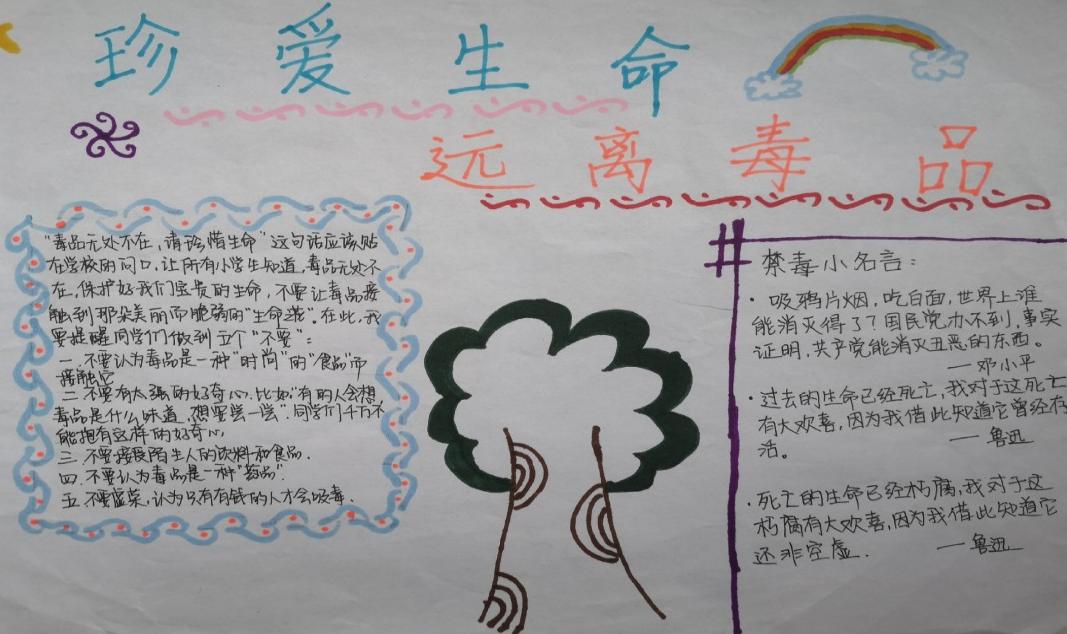 珍爱生命
远离毒品
"毒品无处不在,请珍惜生命"这句话应该贴
在学校的门口,让所有小学生知道,毒品无处不
在,保护好我们宝贵的生命,不要让毒品接
触到那朵美丽而脆弱的"生命娑"。在此,我
要提醒同学们做到五个"不要":
一.不要认为毒品是一种"时尚"的"食品"而
接触它
二.不要有太强的好奇心.比如:有的人会想
毒品是什么味道,想要尝一尝".同学们千万不
能抱有这样的好奇心.
三.不要接受陌生人的饮料和食品.
四.不要认为毒品是一种"药品".
五.不要虚荣,认为只有有钱的人才会吸毒.
禁毒小名言:
·吸鸦片烟,吃白面,世界上谁
能消灭得了?国民党办不到,事实
证明,共产党能消灭丑恶的东西。
—邓小平
·过去的生命已经死亡,我对于这死亡
有大欢喜,因为我借此知道它曾经存
活。
—鲁迅
·死亡的生命已经朽腐,我对于这
朽腐有大欢喜,因为我借此知道它
还非空虚.
—鲁迅